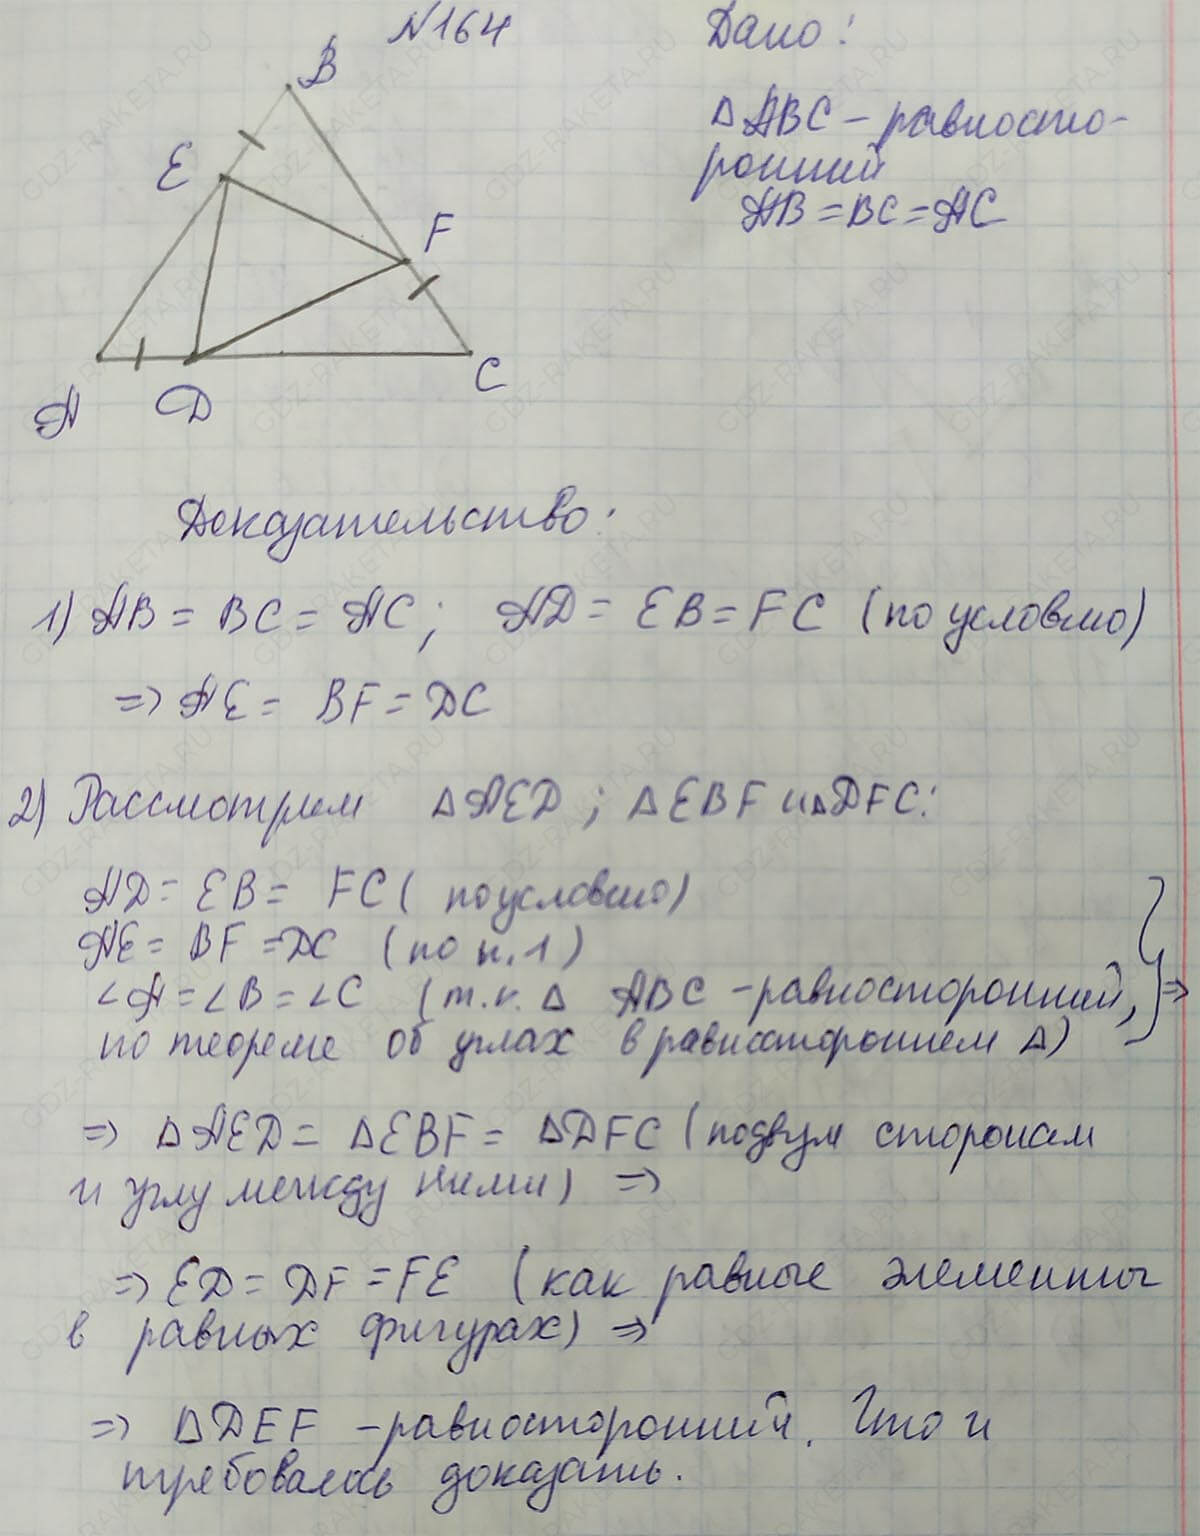 N164
Дано:
B
△ABC – равносто-
ронний
E
AB = BC = AC
F
C
A
D
Доказательство:
1) AB = BC = AC; AD = EB = FC (по условию)
=> AE = BF = DC
2) Рассмотрим △AED; △EBF и △DFC:
AD = EB = FC (по условию)
AE = BF = DC (по п.1)
∠A = ∠B = ∠C (т.к. △ ABC – равносторонний, =>
по теореме об углах в равностороннем △)
=> △AED = △EBF = △DFC (по двум сторонам
и углу между ними) =>
=> ED = DF = FE (как равные элементы
в равных фигурах) =>
=> △DEF – равносторонний. Что и
требовалось доказать.
GDZ-RAKETA.RU